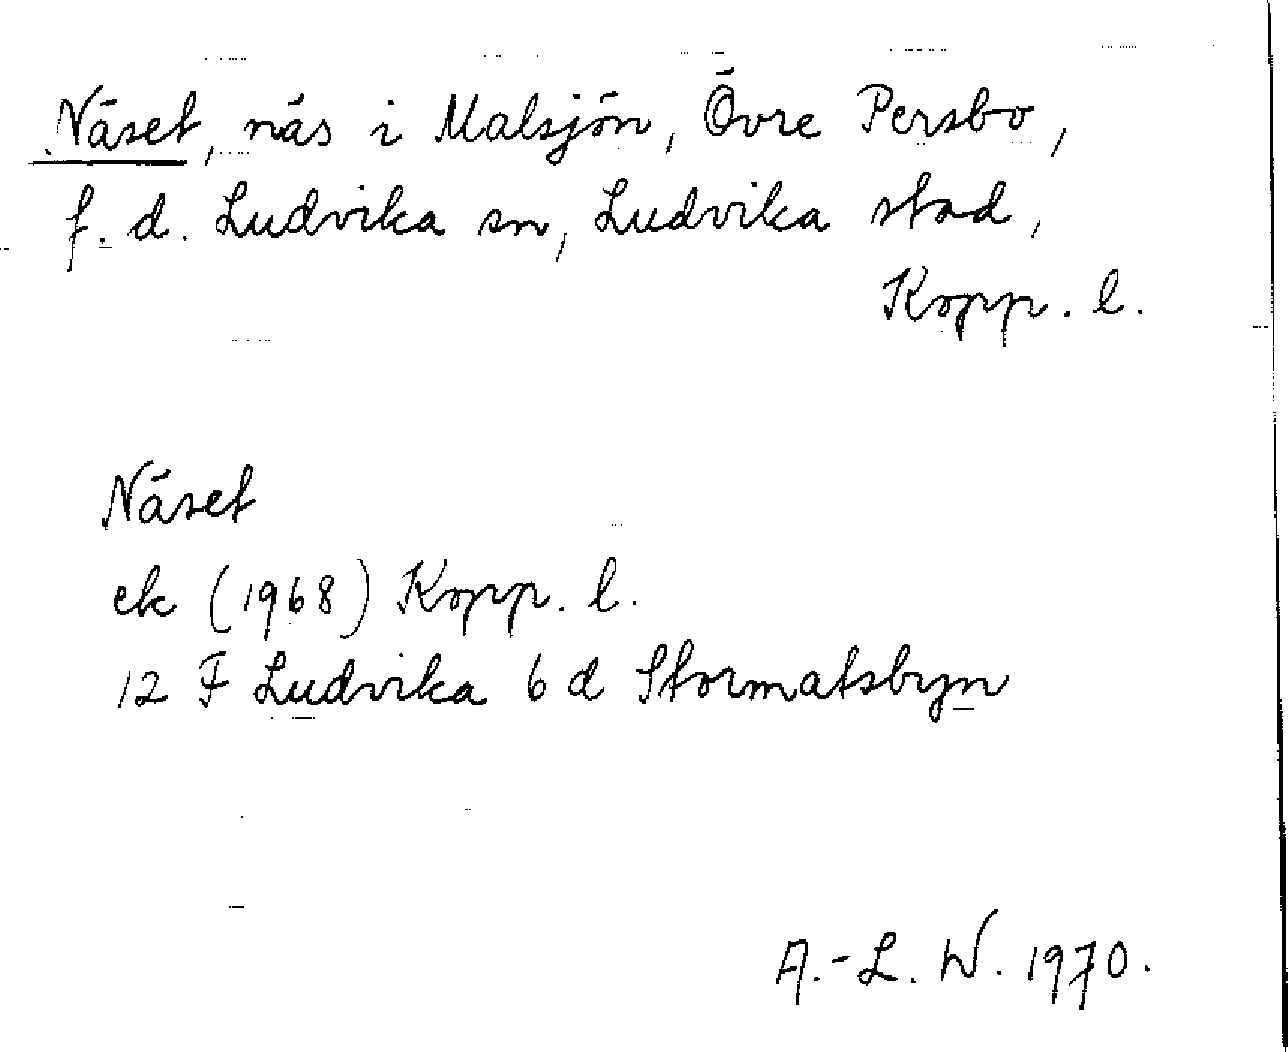 Näset, näs i Malsjön, Övre Persbo,
f. d. Ludvika sn, Ludvika stad,
Kopp. l.
Näset
ek (1968) Kopp. l.
12 F Ludvika 6 d Stormatsbyn
A.-L. W. 1970.